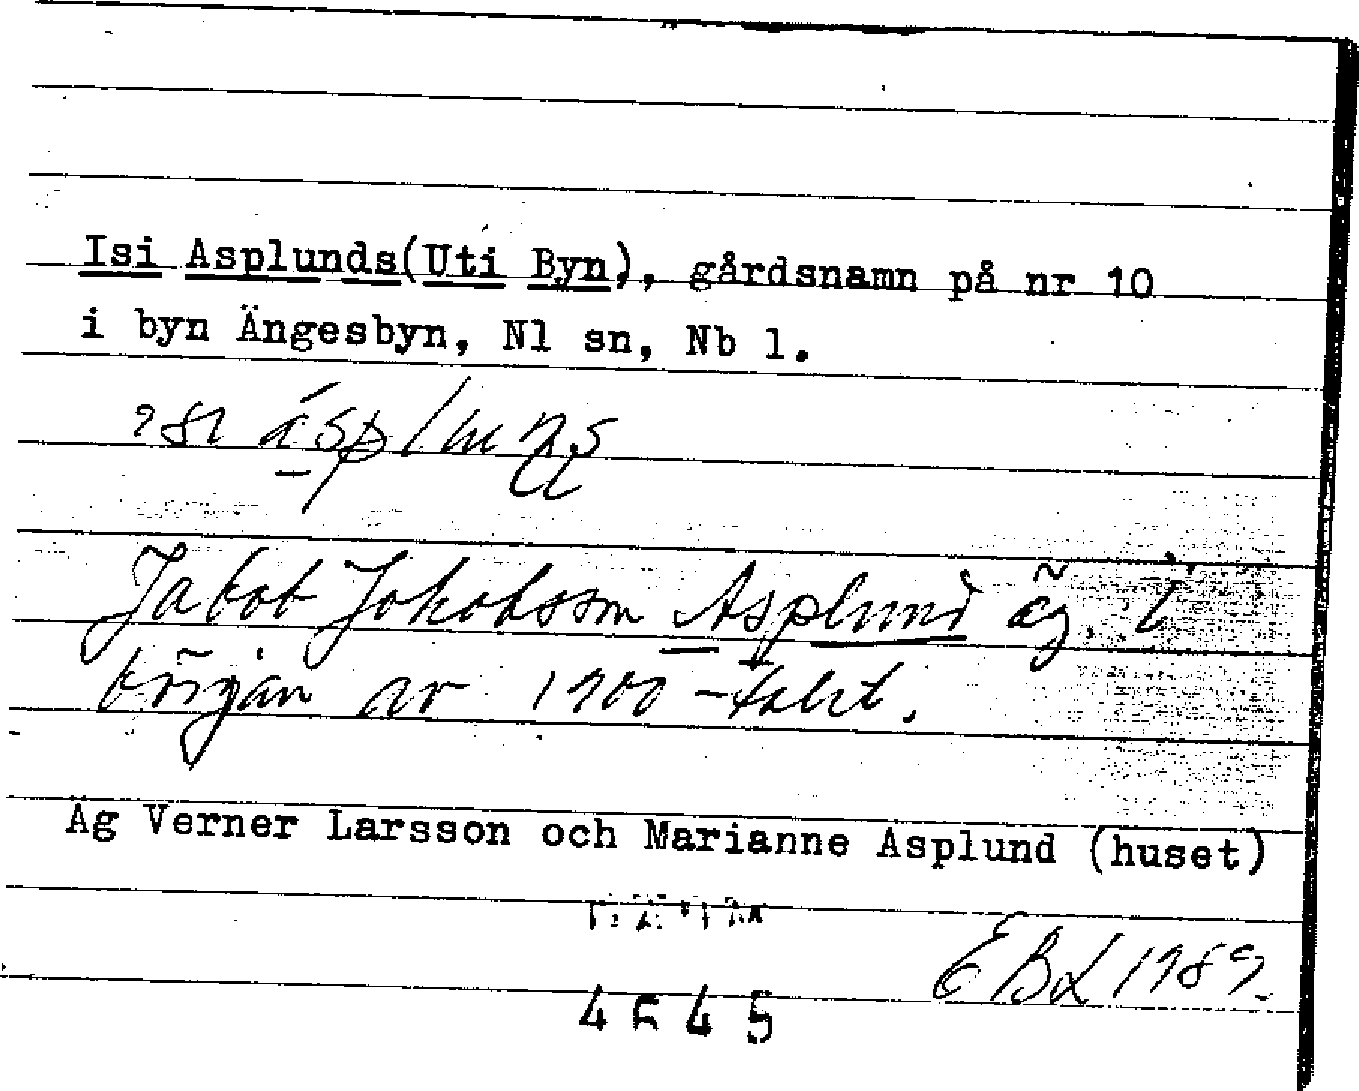 Isi Asplunds(Uti Byn), gårdsnamn på nr 10
i byn Ängesbyn, Nl sn, Nb l.
Jakob Jakobsson Asplund äg. i
början av 1900-talet.
Äg Verner Larsson och Marianne Asplund (huset)
EBL 1989.